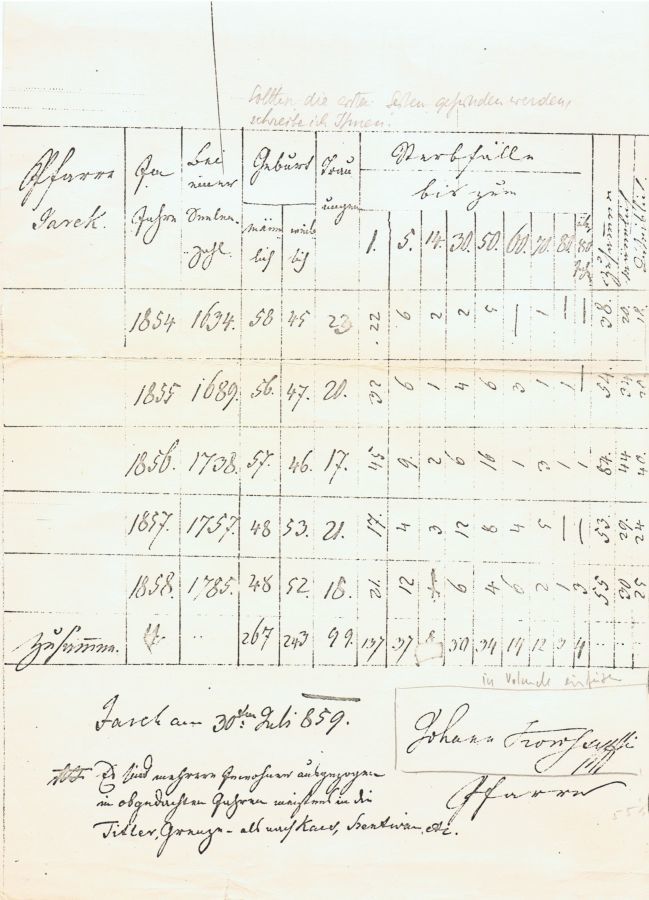 Sollten die ersten Seiten gefunden werden,
schreibe ich Ihnen!
Pfarre Jarek.
Im Jahre
Bei einer Seelen-zahl.
Geburt
männlich
weiblich
Trauungen
Sterbfälle
bis zum
1. 5. 14. 30. 50. 60. 70. 80. über 80 Jahr
1854 1634. 58 45 23 22. 6 2 2 5 — 1 — — 38
1855 1689. 56. 47. 20. 32 6 1 4 6 3 1 1 — 54.
1856. 1738. 57. 46. 17. 45 9. 2 16 1 3 1 1 84. 44 40.
1857. 1757. 48 53. 21. 17. 4 3 12 8 4 5 — — 53. 29. 24
1858. 1785. 48 52 18. 21. 12 6 4 2 1 3 55
Zusammen. 267 243 99. 137 37 8 30 34 14 12 3 4
in Urkunde einfügen
Jarek am 30ten Juli 859.
Johann
Pfarrer
Es sind mehrere Einwohner ausgezogen
in obgedachten Jahren meistens in die
Titler, Grenze – als nach Kacs, Szentivan, etc.